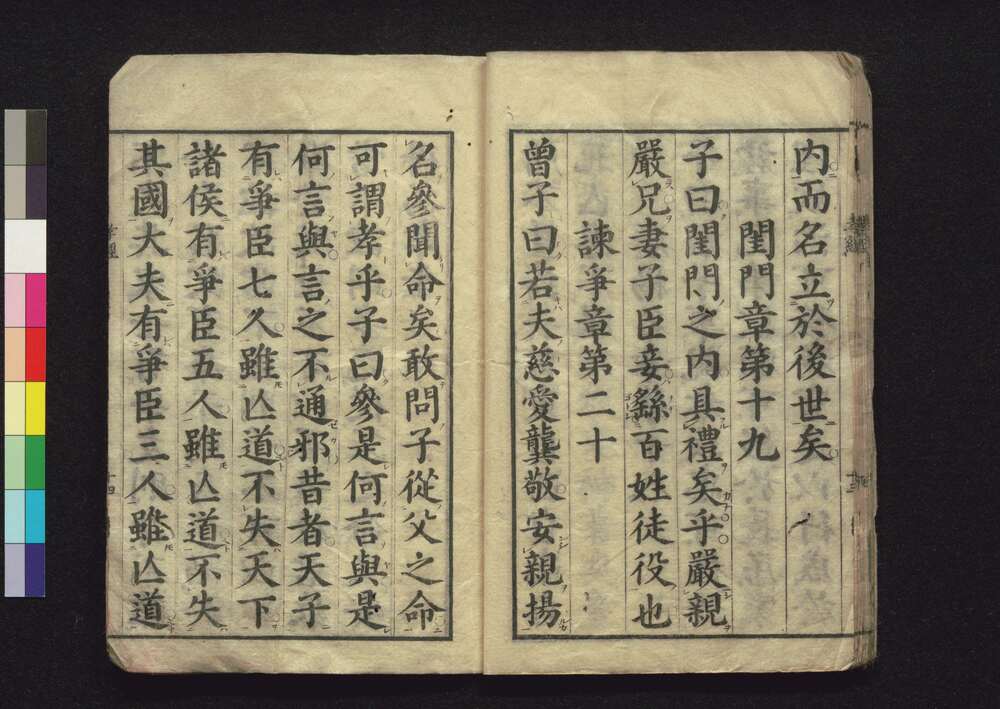 内而名立於後世矣
閨門章第十九
子曰閨門之内具禮矣乎嚴親
嚴兄妻子臣妾繇百姓徒役也
諫爭章第二十
曾子曰若夫慈愛龔敬安親揚
名參聞命矣敢問子從父之命
可謂孝乎子曰參是何言與是
何言與言之不通邪昔者天子
有爭臣七人雖亾道不失天下
諸侯有爭臣五人雖亾道不失
其國大夫有爭臣三人雖亾道